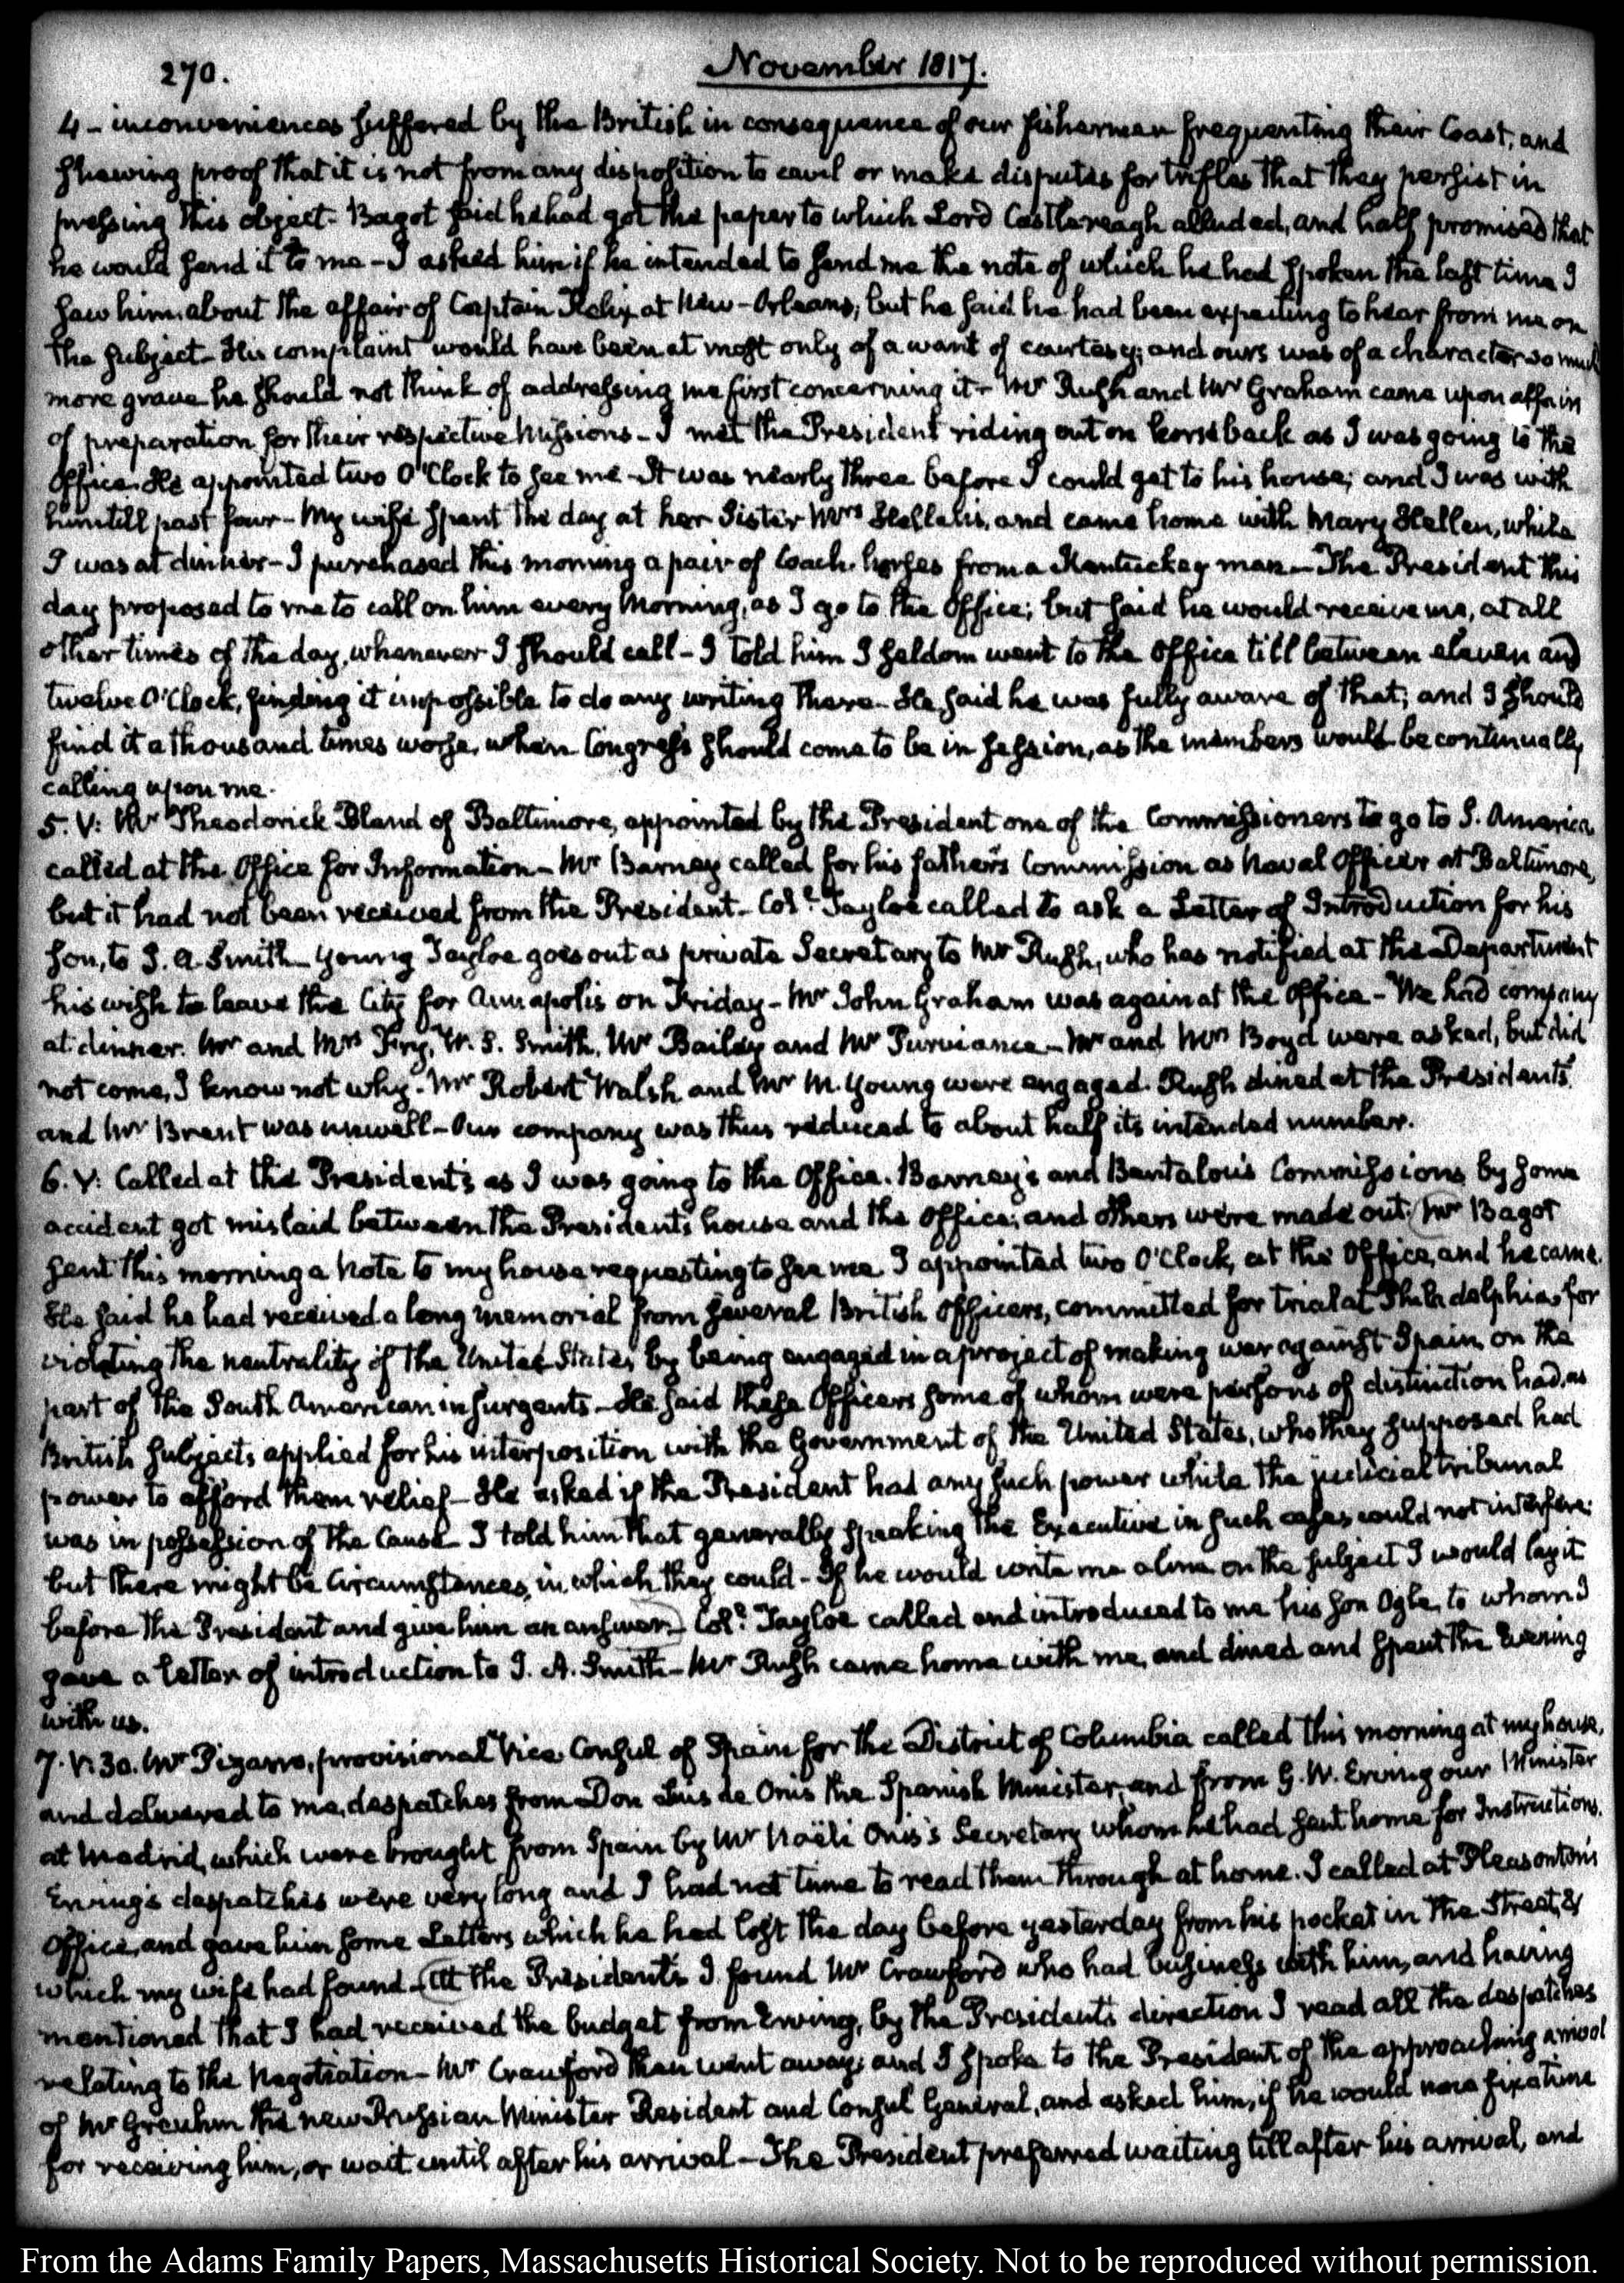 270.
November 1817.
4 - inconveniences suffered by the British in consequence of our fishermen frequenting their Coast, and
shewing proof that it is not from any disposition to cavil or make disputes for trifles that they persist in
pressing this object - Bagot said he had got the paper to which Lord Castlereagh alluded, and half promised that
he would send it to me - I asked him if he intended to send me the note of which he had spoken the last time I
saw him about the affair of Captain at New-Orleans; but he said he had been expecting to hear from me on
the subject - His complaint would have been at most only of a want of courtesy; and ours was of a character so much
more grave he should not think of addressing me first concerning it - Mr Rush and Mr Graham came upon affairs
of preparation for their respective Missions - I met the President riding out on horseback as I was going to the
Office. He appointed two O'Clock to see me - It was nearly three before I could get to his house; and I was with
him till past four - My wife spent the day at her Sister Mrs Hellen's, and came home with Mary Hellen, while
I was at dinner - I purchased this morning a pair of Coach-horses from a Kentuckey man - The President this
day proposed to me to call on him every Morning, as I go to the Office; but said he would receive me, at all
other times of the day, whenever I should call - I told him I seldom went to the Office till between eleven and
twelve O'Clock, finding it impossible to do any writing there - He said he was fully aware of that; and I should
find it a thousand times worse, when Congress should come to be in session, as the members would be continually
calling upon me.
5. V: Mr Theodorick Bland of Baltimore, appointed by the President one of the Commissioners to go to S. America
called at the Office for Information - Mr Barney called for his father's Commission as Naval Officer at Baltimore,
but it had not been received from the President - Coll. Tayloe called to ask a Letter of Introduction for his
son, to J. A. Smith - Young Tayloe goes out as private Secretary to Mr Rush, who has notified at the Department
his wish to leave the City for Annapolis on Friday - Mr John Graham was again at the Office - We had company
at dinner. Mr and Mrs Frye, W. S. Smith, Mr Bailey and Mr Purviance - Mr and Mrs Boyd were asked, but did
not come, I know not why. Mr Robert Walsh and Mr M. Young were engaged. Rush dined at the Presidents
and Mr Brent was unwell - Our company was thus reduced to about half its intended number.
6. V: Called at the President's as I was going to the Office. Barney's and Bentalou's Commissions by some
accident got mislaid between the Presidents house and the Office; and others were made out. Mr Bagot
sent this morning a Note to my house requesting to see me. I appointed two O'Clock, at the Office, and he came.
He said he had received a long memorial from several British Officers, committed for trial at Philadelphia, for
violating the neutrality of the United States, by being engaged in a project of making war against Spain, on the
part of the South American insurgents - He said these Officers some of whom were persons of distinction had, as
British Subjects applied for his interposition with the Government of the United States, who they supposed had
power to afford them relief - He asked if the President had any such power while the judicial tribunal
was in possession of the Cause - I told him that generally speaking the Executive in such cases could not interfere:
but there might be circumstances, in which they could - If he would write me a line on the subject I would lay it
before the President and give him an answer - Coll. Tayloe called and introduced to me his son Ogle, to whom I
gave a letter of introduction to J. A. Smith - Mr Rush came home with me, and dined and spent the Evening
with us.
7. V:30. Mr Pizarro, provisional Vice-Consul of Spain for the District of Columbia called this morning at my house,
and delivered to me, despatches from Don Luis de Onis the Spanish Minister, and from G. W. Erving our Minister
at Madrid, which were brought from Spain by Mr Noëli Onis's Secretary whom he had sent home for Instructions.
Erving's despatches were very long and I had not time to read them through at home. I called at Pleasonton's
Office, and gave him some Letters which he had lost the day before yesterday from his pocket in the Street, &
which my wife had found. At the President's I found Mr Crawford who had business with him, and having
mentioned that I had received the budget from Erving, by the President's direction I read all the despatches
relating to the Negotiation - Mr Crawford then went away; and I spoke to the President of the approaching arrival
of Mr Greuhm the new Prussian Minister Resident and Consul General, and asked him, if he would now fix a time
for receiving him, or wait until after his arrival - The President preferred waiting till after his arrival, and
From the Adams Family Papers, Massachusetts Historical Society. Not to be reproduced without permission.